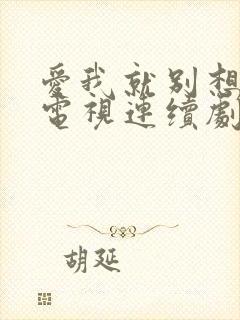 愛我就别想
電視連續劇
胡延